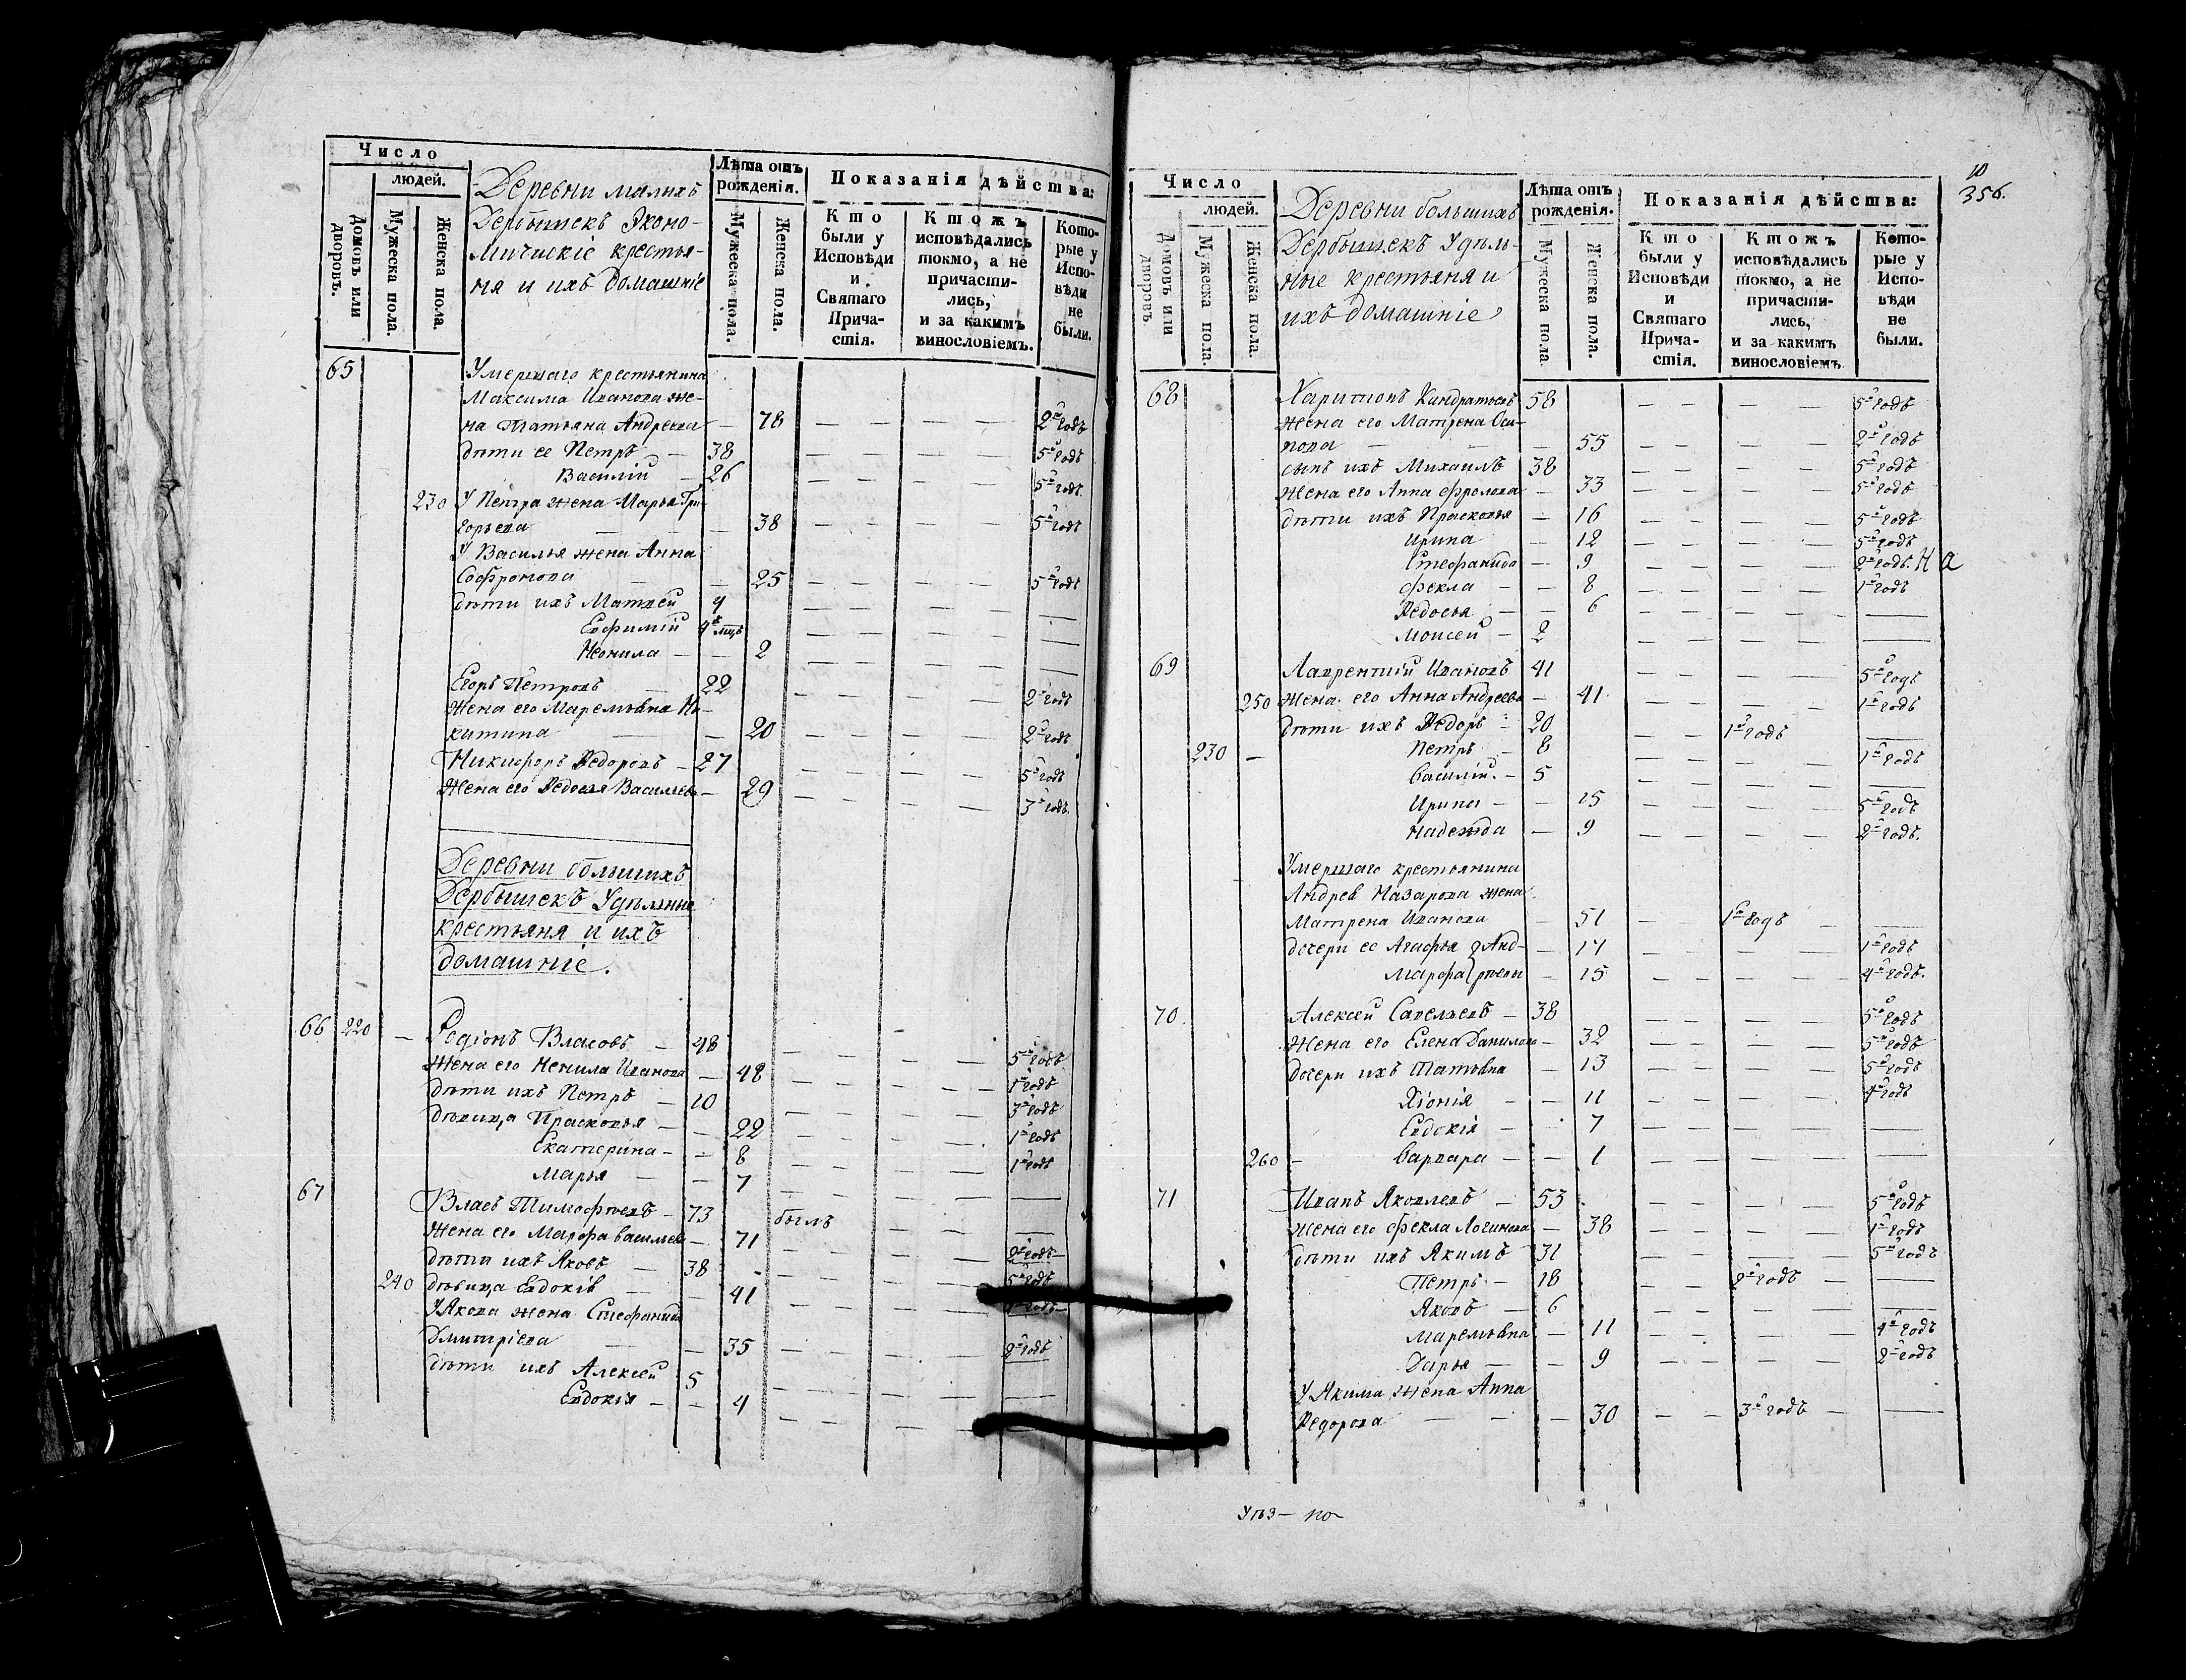 Число
людей.
Домовъ или дворовъ.
Мужеска пола.
Женска пола.
Деревни малыхъ
Дербышекъ Эконо-
мическіе крестья-
ня и ихъ домашніе
Лѣта отъ рожденія.
Мужеска пола.
Женска пола.
Показанія дѣйства:
Кто были у Исповѣди и Святаго Прича-стія.
Ктожъ исповѣдались токмо, а не причасти-лись, и за какимъ винословіемъ.
Кото-рые у Испо-вѣди не были.
65 Умершаго крестьянина
Максима Иванова же-
на Татьяна Андреева — 78 — — — — 2й годъ
дѣти ее Петръ — 38 — — — — 5й годъ
Василій — 26 — — — — 5й годъ.
230 У Петра жена Марья Гри-
горьева — — — 38 — — — — 5й годъ
У Василья жена Анна
Софронова — — 25 — — — — 5й годъ
дѣти ихъ Матвей 4 — — — — —
Евфимій 4х мцъ — — — — —
Неонила — — 2 — — — — —
Егоръ Петровъ — 22 — — — — 2й годъ
Жена его Маремьяна Ни-
китина — — 20 — — — — 2й годъ
Никифоръ Ѳедоровъ — 27 — — — — 5й годъ
Жена его Ѳедосья Васильева — 29 — — — — 3й годъ.
Деревни большихъ
Дербышекъ Удѣльные
крестьяня и ихъ
домашніе.
66 220 — Родіонъ Власовъ — 48 — — — — 5й годъ.
Жена его Ненила Иванова — 48 — — — — 1й годъ
дѣти ихъ Петръ — 10 — — — — 3й годъ
дѣвица Прасковья — — 22 — — — — 1й годъ
Екатерина — — 8 — — — — 1й годъ
Марья — — 7 — — — — —
67 Власъ Тимофѣевъ — 73 былъ — — — —
Жена его Марфа Васильева — 71 — — — — 2й годъ
дѣти ихъ Яковъ — 38 — — — — 5й годъ
240 дѣвица Евдокія — — 41 — — — — годъ
У Якова жена Стефанида
Дмитріева — — 35 — — — — 2й годъ
дѣти ихъ Алексей 5 — — — — —
Евдокія — — 4 — — — — —
10
356.
Число
людей.
Домовъ или дворовъ.
Мужеска пола.
Женска пола.
Деревни большихъ
Дербышекъ Удѣль-
ные крестьяня и
ихъ домашніе
Лѣта отъ рожденія.
Мужеска пола
Женска пола.
Показанія дѣйства:
Кто были у Исповѣди и Святаго Прича-стія.
Ктожъ исповѣдались токмо, а не причасти-лись, и за какимъ винословіемъ.
Кото-рые у Испо-вѣди не были.
68 Харитонъ Кондратьевъ 58 — — — — 5й годъ
жена его Матрена Оси-
пова — — — 55 — — — — 2й годъ
сынъ ихъ Михаилъ 38 — — — — 5й годъ
Жена его Анна Фролова — 33 — — — — 5й годъ
дѣти ихъ Прасковья — 16 — — — — 5й годъ
Ирина — 12 — — — — 5й годъ
Стефанида — 9 — — — — 2й годъ. На
Фекла — — 8 — — — — 1й годъ
Ѳедосья — — 6 — — — — —
Моисей — 2 — — — — —
69 Лаврентій Ивановъ 41 — — — — 5й годъ
250 Жена его Анна Андреева — 41 — — — — 1й годъ
дѣти ихъ Ѳедоръ — 20 — — 1й годъ —
230 — Петръ — 8 — — — — 1й годъ
Василій. — 5 — — — — —
Ирина — — 15 — — — — 5й годъ
Надежда — 9 — — — — 2й годъ.
Умершаго крестьянина
Андрея Назарова жена
Матрена Иванова — 51 — 1й годъ — —
дочери ее Агафья } Анд- — 17 — — — — 1й годъ
Марфа } рѣевы — 15 — — — — 4й годъ.
70. Алексей Савельевъ — 38 — — — — 5й годъ
Жена его Елена Данилова — 32 — — — — 5й годъ
дочери ихъ Татьяна — 13 — — — — 5й годъ
Хіонія — — 11 — — — — 4й годъ
Евдокія — — 7 — — — — —
260 — Варвара — — 1 — — — — —
71 Иванъ Яковлевъ — 53 — — — — 5й годъ
жена его Фекла Логинова — 38 — — — — 1й годъ
дѣти ихъ Якимъ 31 — — — — 5й годъ
Петръ — 18 — — 2й годъ — —
Яковъ — 6 — — — — —
Маремьяна — 11 — — — — 4й годъ
Дарья — — 9 — — — — 2й годъ
У Якима жена Анна
Ѳедорова — — — 30 — — 3й годъ — —